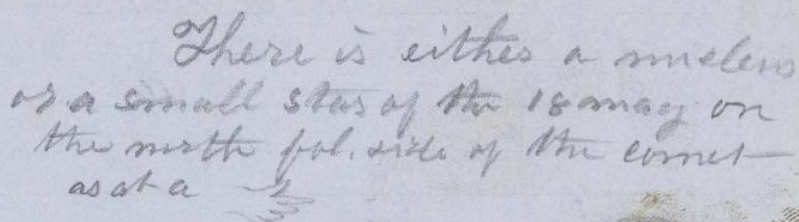 There is either a nucleus
or a small star of the 18 mag on
the north fol. side of the comet
as at a